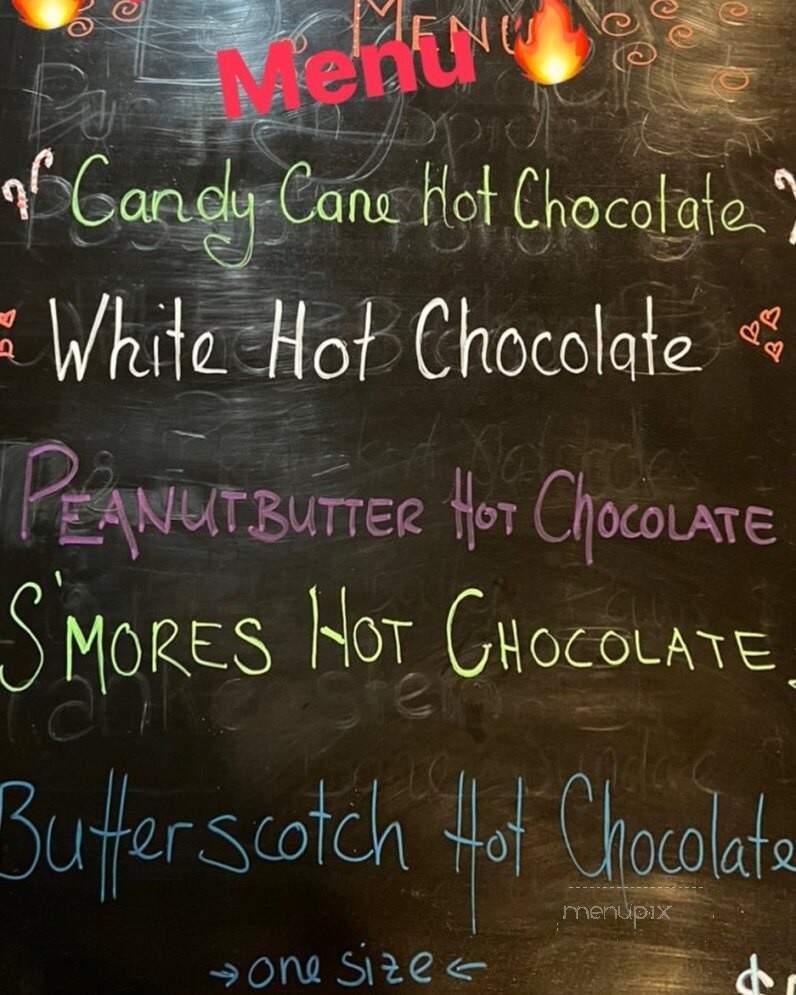 MENU
Menu
Candy Cane Hot Chocolate
White Hot Chocolate
PEANUTBUTTER HOT CHOCOLATE
S'MORES HOT CHOCOLATE
Butterscotch Hot Chocolate
menupix
→one size←
$